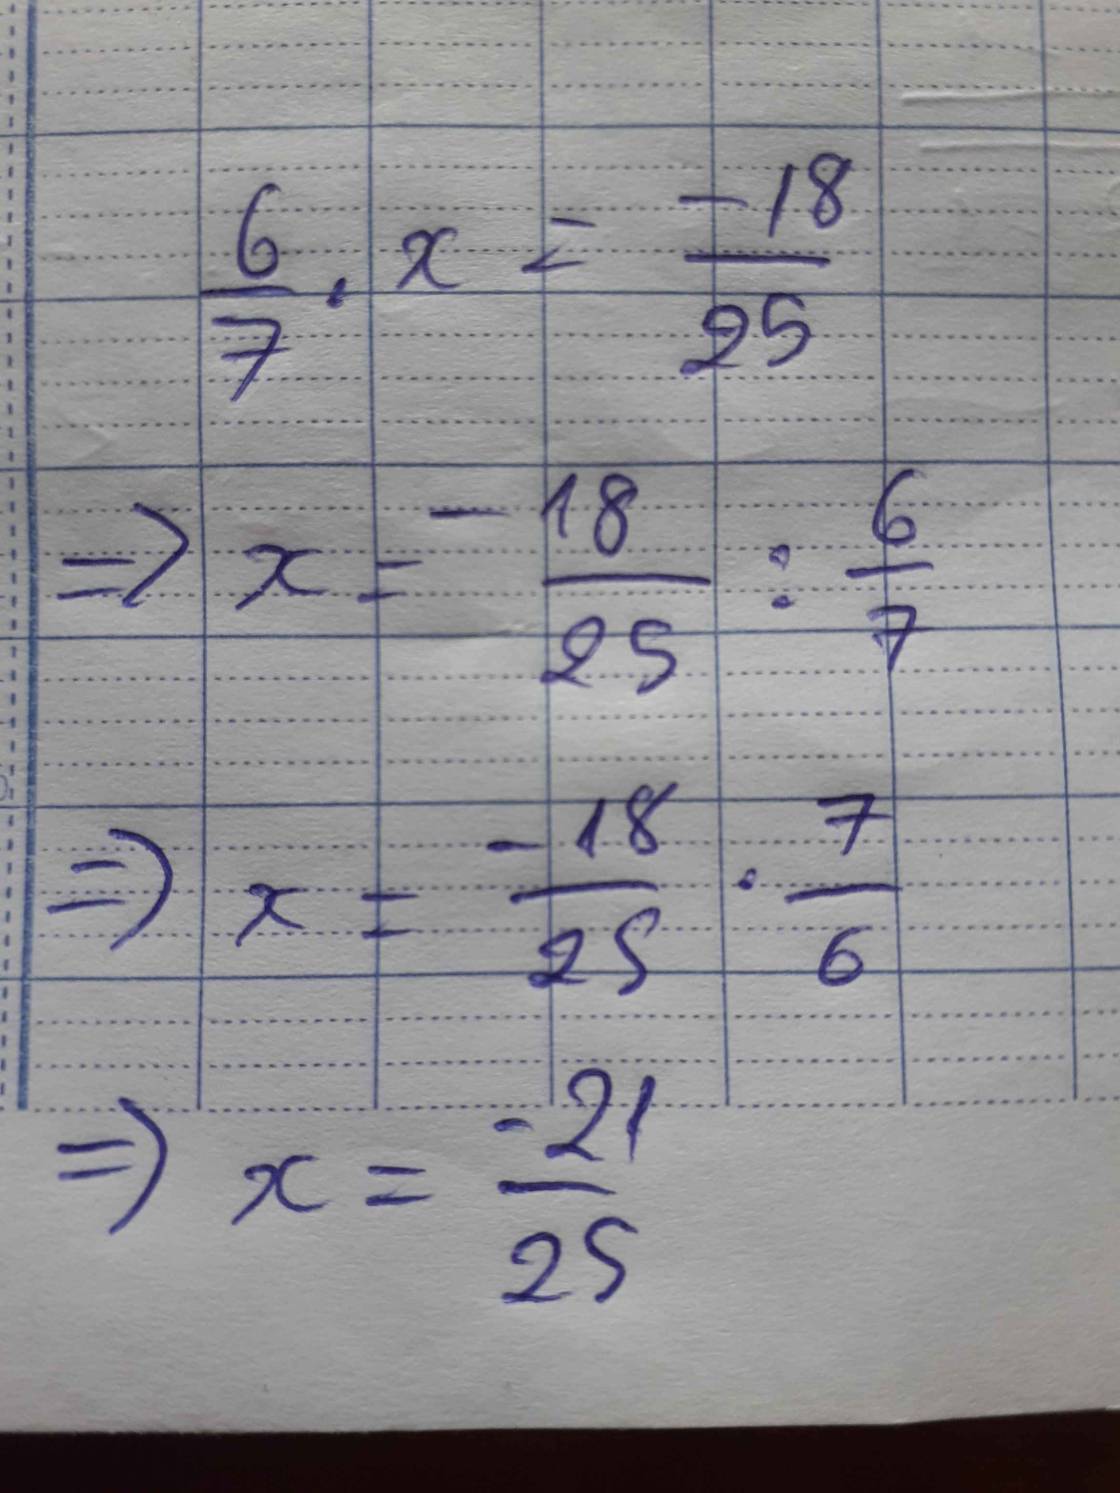 6/7 . x = -18/25
=> x = -18/25 : 6/7
=> x = -18/25 . 7/6
=> x = -21/25